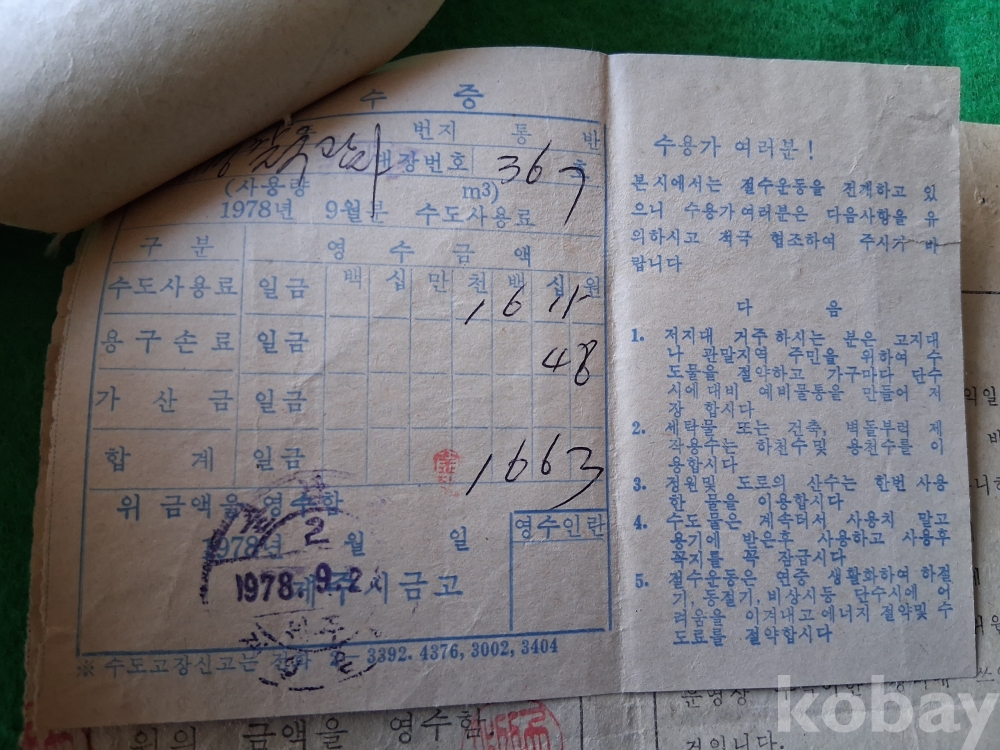 수 증
번지 통 반
대장번호 367 호
(사용량 m3)
1978년 9월분 수도사용료
구 분 영 수 금 액
수도사용료 일금 백 십 만 천 백 십 원
1615
용구손료 일금
48
가 산 금 일금
합 계 일금 1663
위 금액을 영수함
1978년 월 일
영수인란
2
1978. 9. 2
제주시금고
※ 수도고장신고는 전화 2-3392. 4376, 3002, 3404
수용가 여러분!
본시에서는 절수운동을 전개하고 있
으니 수용가여러분은 다음사항을 유
의하시고 적극 협조하여 주시기 바
랍니다
다 음
1. 저지대 거주하시는 분은 고지대
나 관말지역 주민을 위하여 수
도물을 절약하고 가구마다 단수
시에대비 예비물통을 만들어 저
장 합시다
2. 세탁물 또는 건축, 벽돌부럭 제
작용수는 하천수및 용천수를 이
용합시다
3. 정원및 도로의 산수는 한번 사용
한 물을 이용합시다
4. 수도물은 계속터서 사용치 말고
용기에 받은후 사용하고 사용후
꼭지를 꼭 잠급시다
5. 절수운동은 연중 생활화하여 하절
기, 동절기, 비상시등 단수시에 어
려움을 이겨내고 에너지 절약및 수
도료를 절약합시다
위의 금액을 영수함.
운영상
것입니다.
kobay